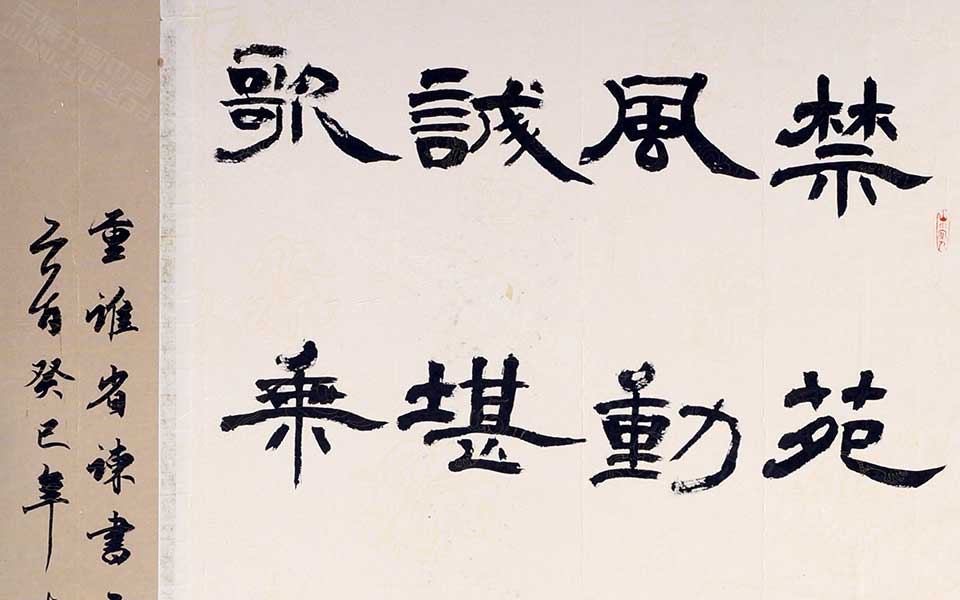 禁苑
風動
誠堪
歌乘
重誰省諫書
癸巳年